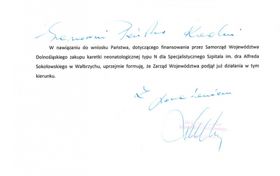 Szanowni Państwo Radni
W nawiązaniu do wniosku Państwa, dotyczącego finansowania przez Samorząd Województwa
Dolnośląskiego zakupu karetki neonatologicznej typu N dla Specjalistycznego Szpitala im. dra Alfreda
Sokołowskiego w Wałbrzychu, uprzejmie formuję, że Zarząd Województwa podjął już działania w tym
kierunku.